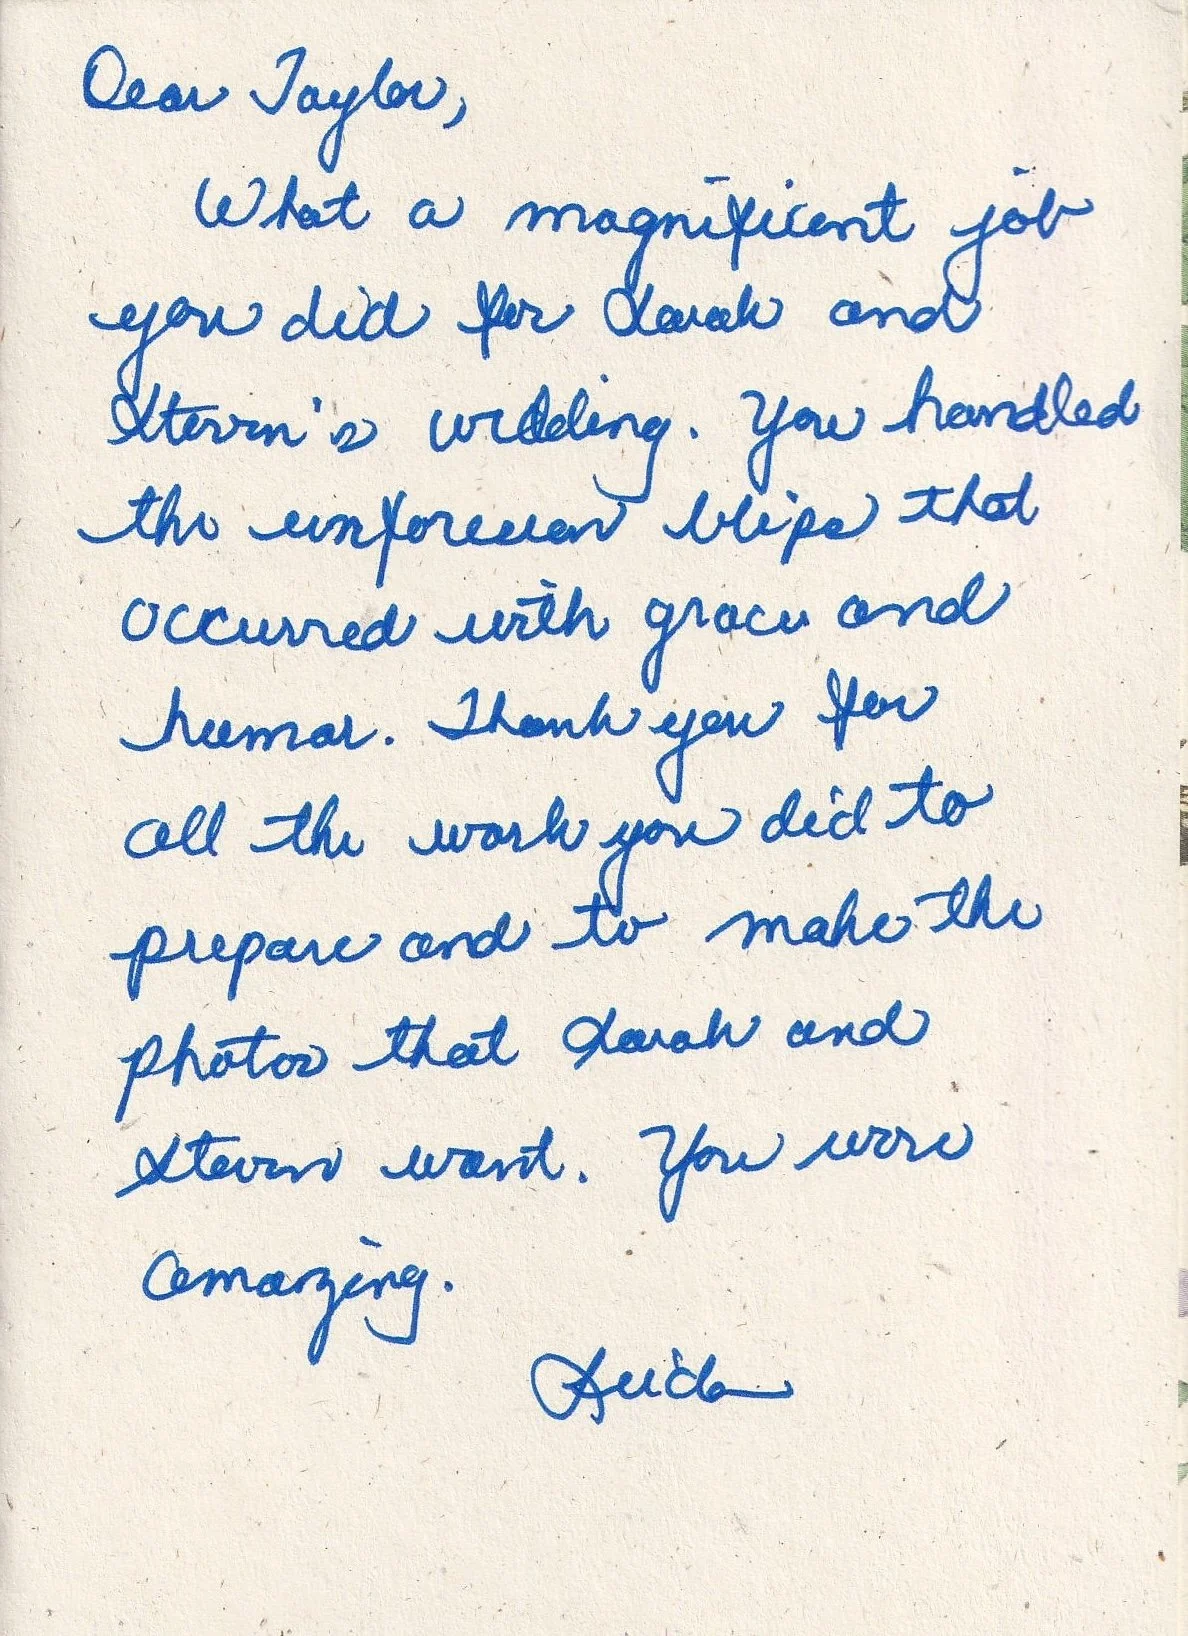 Dear Taylor,
What a magnificent job
you did for Sarah and
Steven's wedding. You handled
the unforeseen blips that
occurred with grace and
humor. Thank you for
all the work you did to
prepare and to make the
photos that Sarah and
Steven want. You were
amazing.